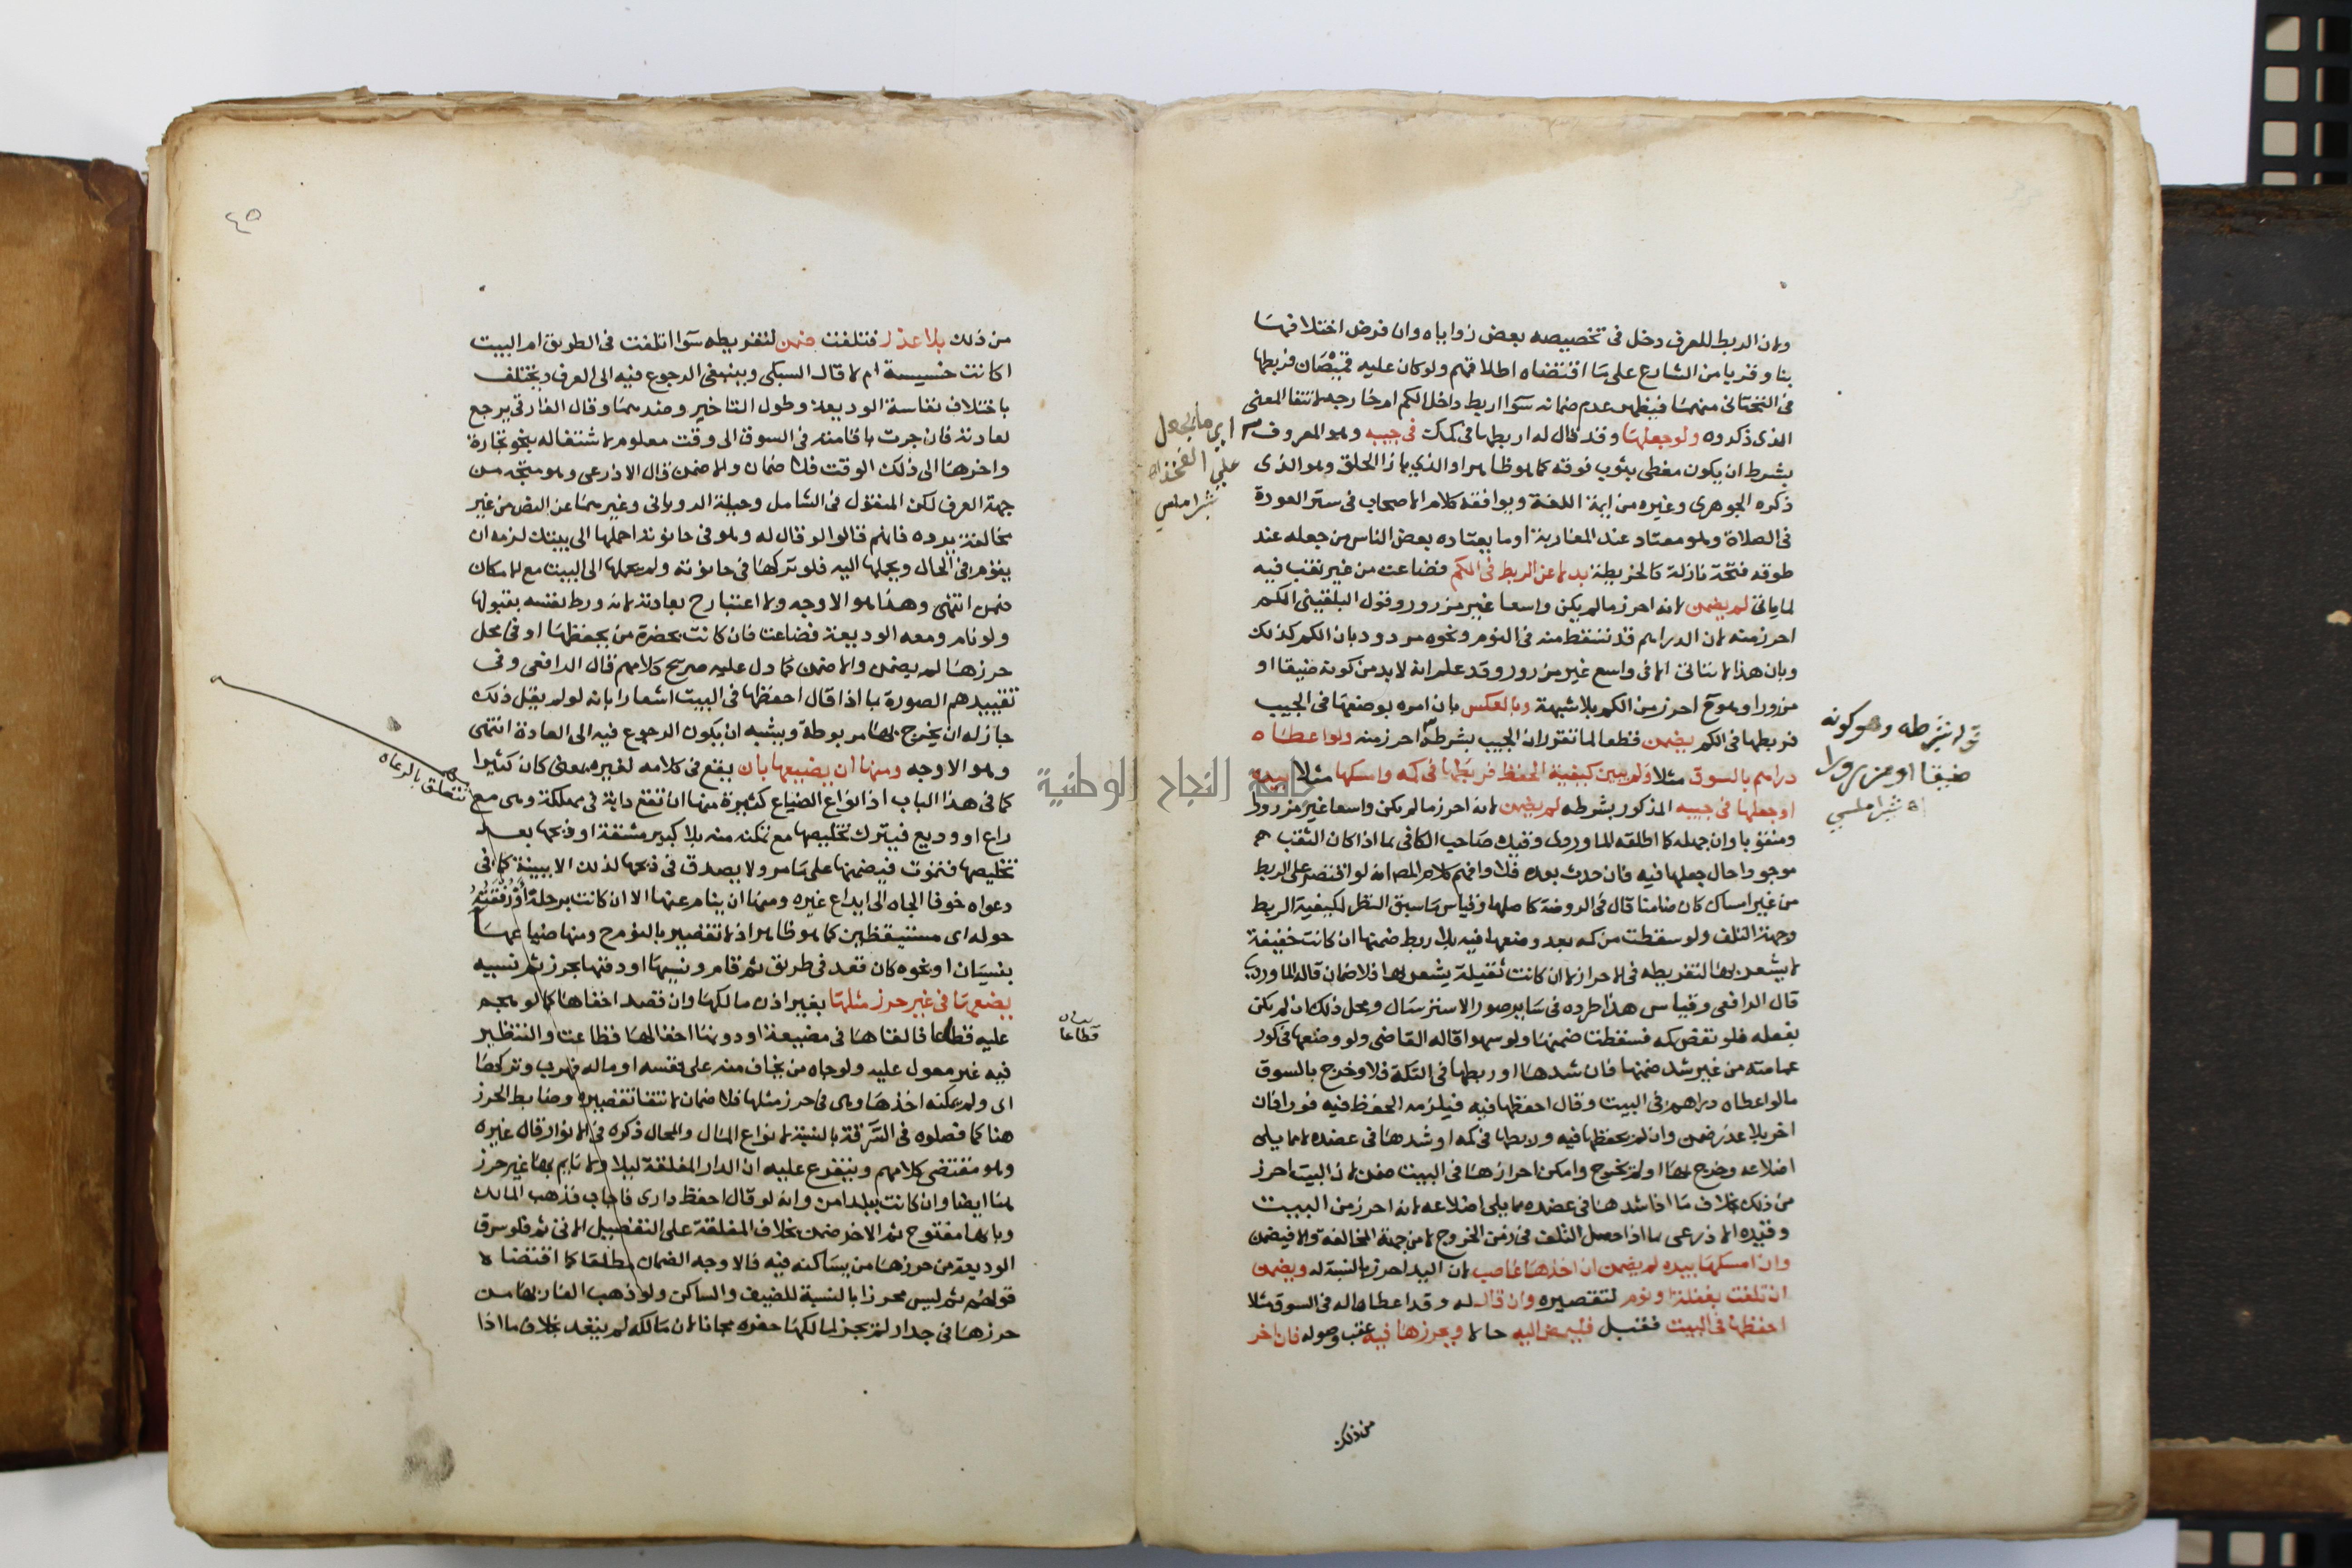 ولان الربط للعرف دخل في تخصيصه بعض زواياه وان فرض اختلافهما
بناء وقربا من الشارع على ما اقتضاه اطلاقهم ولو كان عليه قميصان فربطها
في التحتاني منهما فيظهر عدم ضمانه سوا اربط داخل الكم ام خارجه لانتفا المعنى
الذي ذكروه ولو جعلها وقد قال له اربطها في كمك في جيبه وهو المعروف
بشرط ان يكون مغطى بثوب فوقه كما هو ظاهر او الذي بازا الحلق وهو الذي
ذكره الجوهري وغيره من ايمة اللغة ويوافقه كلام الاصحاب في ستر العورة
في الصلاة وهو معتاد عند المغاربة او ما يعتاده بعض الناس من جعله عند
طوقه فتحة نازلة كالخريطة بدلا عن الربط في الكم فضاعت من غير ثقب فيه
لما ياتي لم يضمن لانه احرز ما لم يكن واسعا غير مزرور وقول البلقيني الكم
احرز منه لان الدراهم قد تسقط منه في النوم ونحوه مردود بان الكم كذلك
وبان هذا لا يتاتى الا في واسع غير مزرور وقد علم انه لا بد من كونه ضيقا او
مزرورا وهو ح احرز من الكم بلا شبهة وبالعكس بان امره بوضعها في الجيب
فربطها في الكم يضمن قطعا لما تقرر ان الجيب بشرطه احرز منه ولو اعطاه
دراهم بالسوق مثلا ولم يبين كيفية الحفظ فربطها في كمه وامسكها مثلا بيده
او جعلها في جيبه المذكور بشرطه لم يضمن لانه احرز ما لم يكن واسعا غير مزرور
ومثقوبا وان جهله كما اطلقه الماوردي وقيده صاحب الكافي بما اذا كان الثقب
موجودا حال جعلها فيه فان حدث بعده فلا وافهم كلام المص انه لو اقتصر على الربط
من غير امساك كان ضامنا قال في الروضة كاصلها وقياس ما سبق النظر لكيفية الربط
وجهة التلف ولو سقطت من كمه بعد وضعها فيه بلا ربط ضمنها ان كانت خفيفة
لا يشعر بها لتفريطه في الاحراز لا ان كانت ثقيلة يشعر بها فلا ضمان قاله الماوردي
قال الرافعي وقياس هذا طرده في ساير صور الاسترسال ومحل ذلك ان لم يكن
بفعله فلو نفض كمه فسقطت ضمنها ولو سهوا قاله القاضي ولو وضعها في كور
عمامته من غير شد ضمنها فان شدها او ربطها في التكة فلا وخرج بالسوق
ما لو اعطاه دراهم في البيت وقال احفظها فيه فيلزمه الحفظ فيه فورا فان
اخر بلا عذر ضمن وان لم يحفظها فيه وربطها في كمه او شدها في عضده لا مما يلي
اضلاعه وخرج بها او لم يخرج وامكن احرازها في البيت ضمن لان البيت احرز
من ذلك بخلاف ما اذا شدها في عضده مما يلي اضلاعه لانه احرز من البيت
وقيده الاذرعي بما اذا حصل التلف في زمن الخروج لا من جهة المخالفة والا فيضمن
وان امسكها بيده لم يضمن ان اخذها غاصب لان اليد احرز بالنسبة له ويضمن
ان تلفت بغفلة او نوم لتقصيره وان قال له وقد اعطاها له في السوق مثلا
احفظها في البيت فقبل فليمض اليه حالا ويحرزها فيه عقب وصوله فان اخر
من ذلك
اي ما يجعل
على الفخذ اه
شبراملسي
قوله بشرطه وهو كونه
ضيقا او مزرورا
اه شبراملسي
جامعة النجاح الوطنية
٤٥
من ذلك بلا عذر فتلفت ضمن لتفريطه سوا اتلفت في الطريق ام البيت
اكانت خسيسة ام لا قال السبكي وينبغي الرجوع فيه الى العرف ويختلف
باختلاف نفاسة الوديعة وطول التاخير وضدهما وقال الفارقي يرجع
لعادته فان جرت باقامته في السوق الى وقت معلوم لاشتغاله بنحو تجارة
واخرها الى ذلك الوقت فلا ضمان والا ضمن قال الاذرعي وهو متجه من
جهة العرف لكن المنقول في الشامل وحلية الروياني وغيرهما عن النص من غير
مخالفة يرده فانهم قالوا لو قال له وهو في حانوته احملها الى بيتك لزمه ان
يقوم في الحال ويحملها اليه فلو تركها في حانوته ولم يحملها الى البيت مع الامكان
ضمن انتهى وهذا هو الاوجه ولا اعتبار ح بعادته لانه ورط نفسه بقبولها
ولو نام ومعه الوديعة فضاعت فان كانت بحضرة من يحفظها او في محل
حرزها لم يضمن والا ضمن كما دل عليه صريح كلامهم قال الرافعي وفي
تقييدهم الصورة بما اذا قال احفظها في البيت اشعار بانه لو لم يقل ذلك
جاز له ان يخرج بها مربوطة ويشبه ان يكون الرجوع فيه الى العادة انتهى
وهو الاوجه ومنها ان يضيعها بان يقع في كلامه لغيره بمعنى كان كثيرا
كما في هذا الباب اذ انواع الضياع كثيرة منها ان تقع دابة في مهلكة وهي مع
راع او وديع فيترك تخليصها مع تمكنه منه بلا كبير مشقة او ذبحها بعد
تخليصها فتموت فيضمنها على ما مر ولا يصدق في ذبحها لذلك الا ببينة كما في
دعواه خوفا الجاه الى ايداع غيره ومنها ان ينام عنها الا ان كانت برحله أو رفقته
حوله اي مستيقظين كما هو ظاهر اذ لا تقصير بالنوم ح ومنها ضياعها
بنسيان او نحوه كان قعد في طريق ثم قام ونسيها او دفنها بحرز ثم نسيه
يضعها في غير حرز مثلها بغير اذن مالكها وان قصد اخفاها كما لو هجم
عليه قطاعا فالقاها في مضيعة او دونها اخفا لها فضاعت والتنظير
فيه غير معول عليه ولو جاه من يخاف منه على نفسه او ماله فهرب وتركها
اي ولم يمكنه اخذها وهي في حرز مثلها فلا ضمان لانتفا تقصيره وضابط الحرز
هنا كما فصلوه في السرقة بالنسبة لانواع المال والمحال ذكره في الانوار قال غيره
وهو مقتضى كلامهم ويتفرع عليه ان الدار المغلقة ليلا ولا نايم بها غير حرز
هنا ايضا وان كانت ببلد امن وانه لو قال احفظ داري فاجاب فذهب المالك
وبابها مفتوح ثم الاخر ضمن بخلاف المغلقة على التفصيل الاتي ثم فلو سرق
الوديعة من حرزها من يساكنه فيه فالاوجه الضمان مطلقا كما اقتضاه
قولهم ثم ليس محرزا بالنسبة للضيف والساكن ولو ذهب الفار بها من
حرزها في جدار لم يجز لمالكها حفره مجانا لان مالكه لم يتعد بخلاف ما اذا
تتعلق بالرعاة
قطاعا